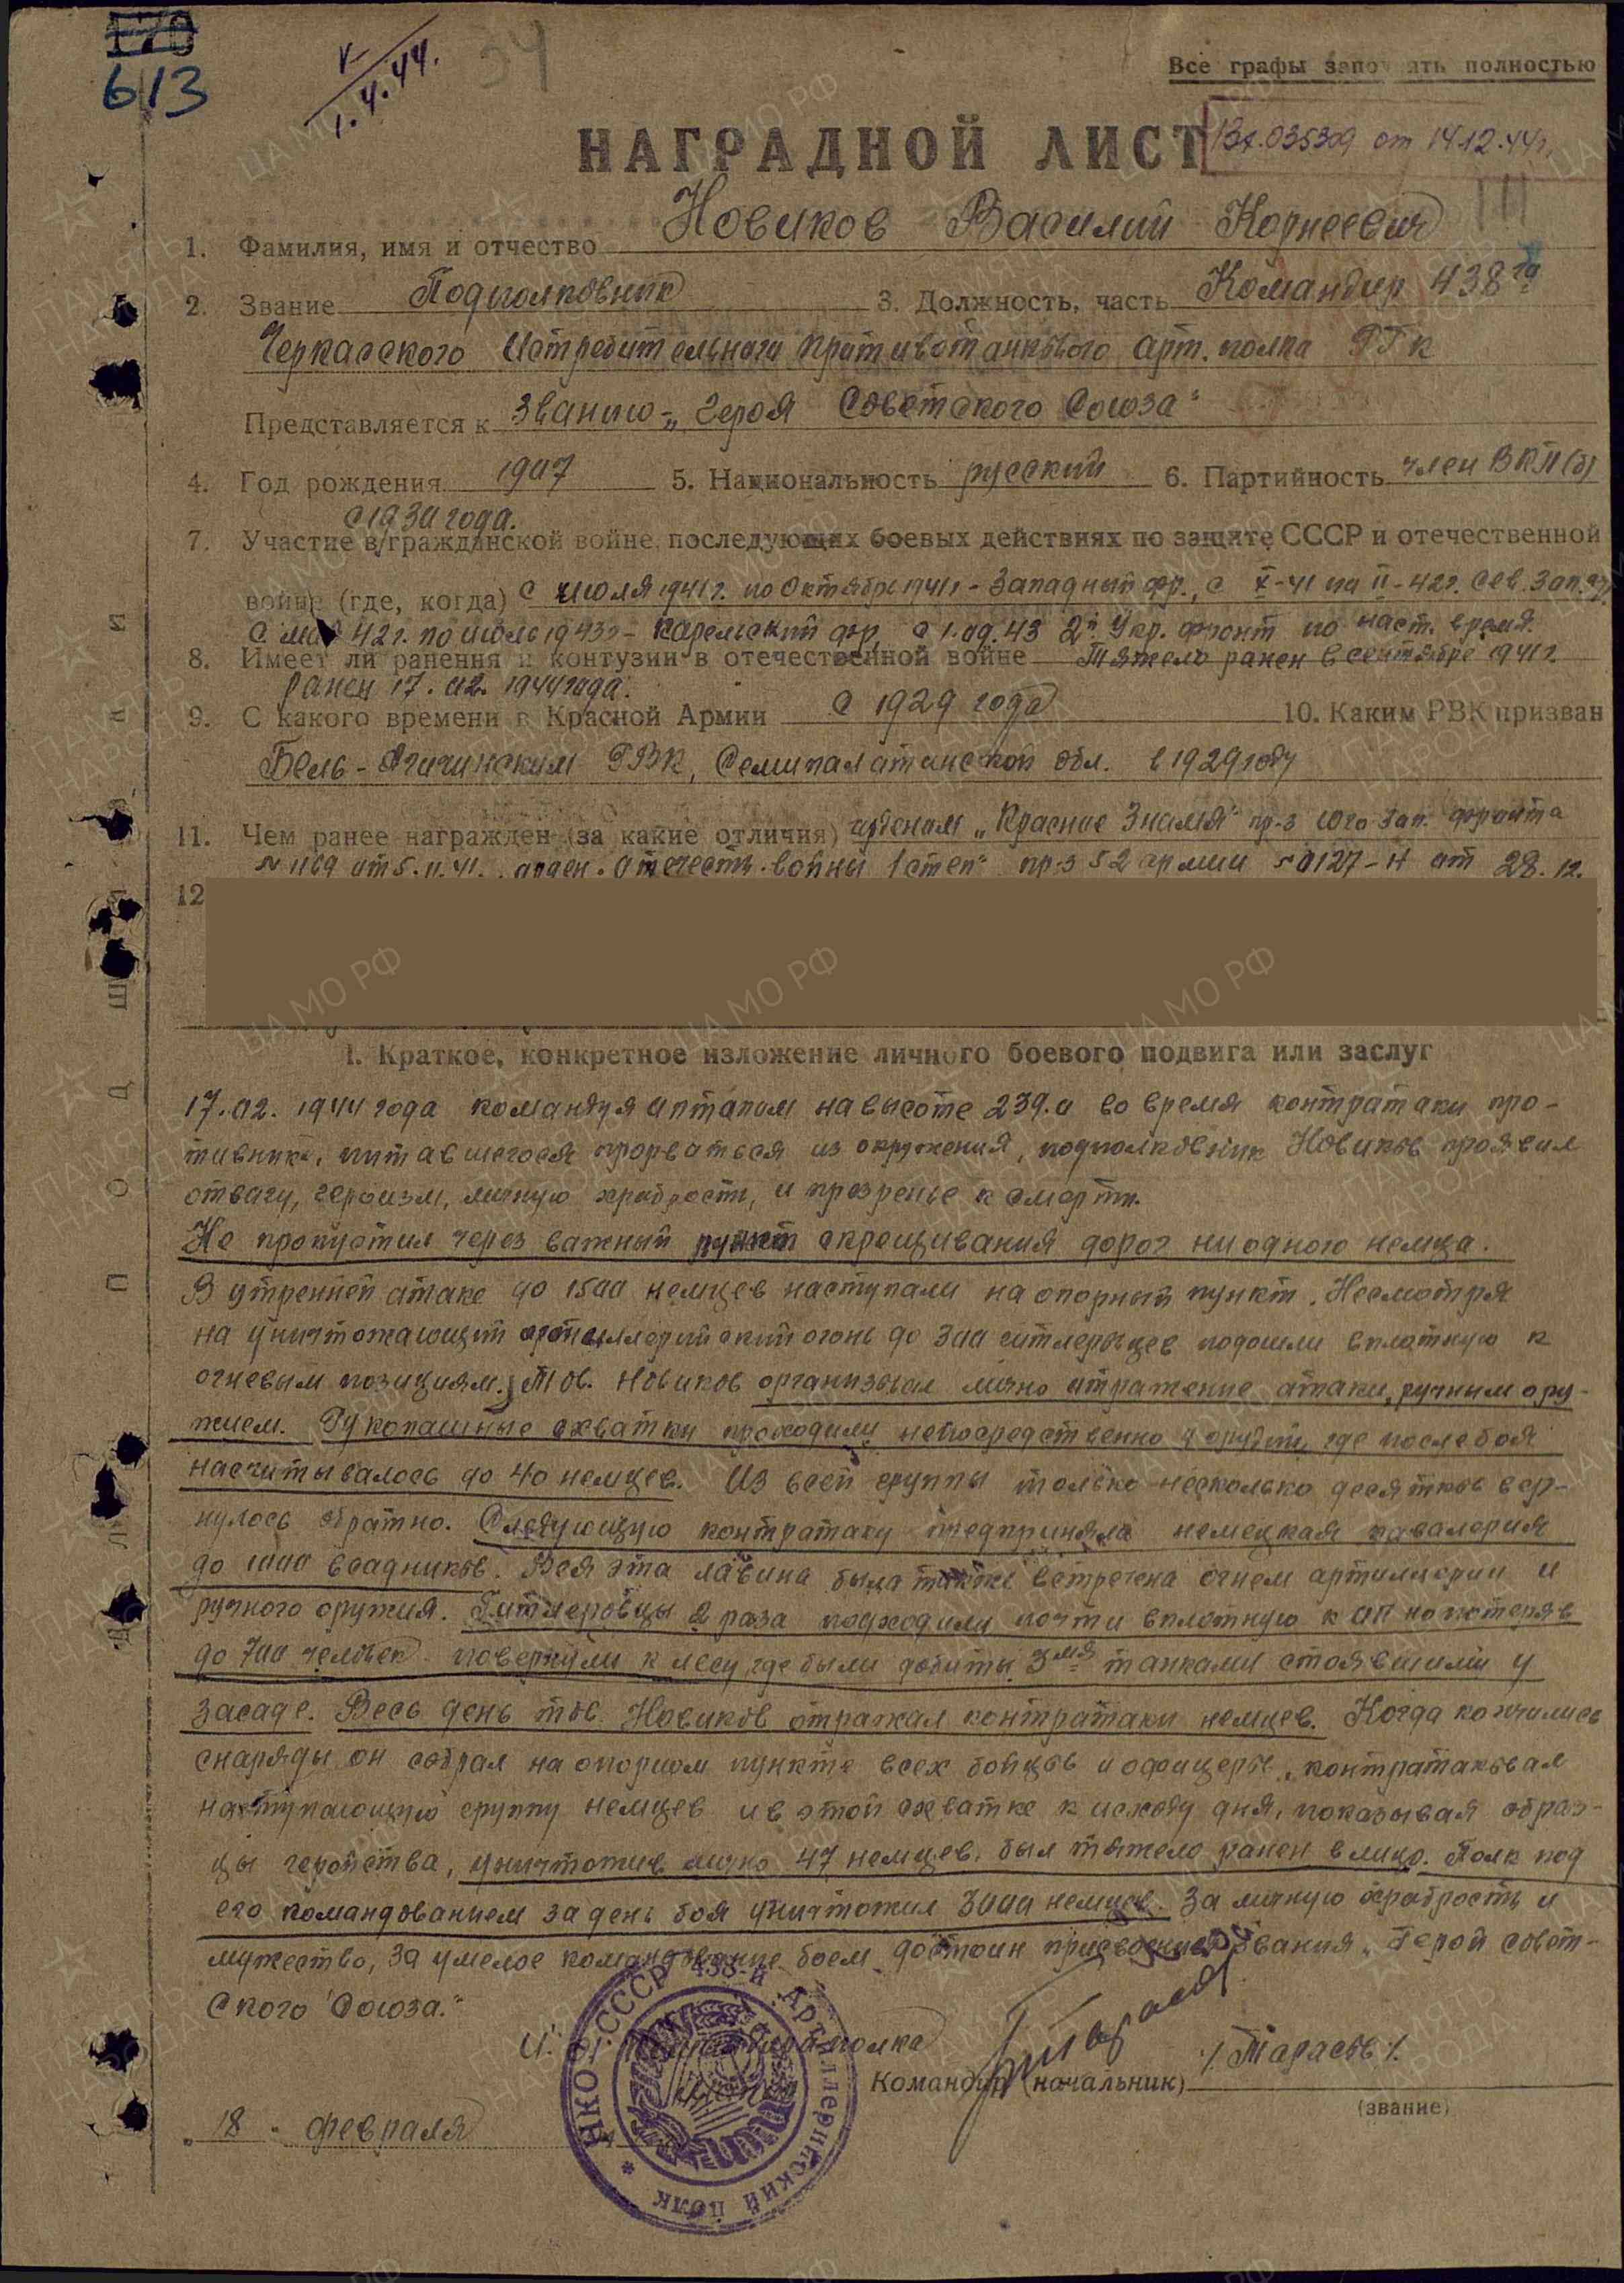 170
613
V
1.4.44.
34
Все графы заполнять полностью
НАГРАДНОЙ ЛИСТ
Вх.035309 от 14.12.44г.
1. Фамилия, имя и отчество Новиков Василий Корнеевич
2. Звание Подполковник 3. Должность, часть Командир 438го
Черкасского Истребительного противотанкового арт. полка РГК
Представляется к званию - „Героя Советского Союза"
4. Год рождения 1907 5. Национальность русский 6. Партийность член ВКП(б)
с 1930 года.
7. Участие в гражданской войне, последующих боевых действиях по защите СССР и отечественной
войне (где, когда) с июля 1941г. по Октябрь 1941г - Западный фр., с X-41 по II-42г. Сев. Зап. фр.
с мая 42г. по июль 1943г - Карельский фр, с 1.09.43 2й Укр. фронт по наст. время.
8. Имеет ли ранения и контузии в отечественной войне Тяжело ранен в сентябре 1941г.
ранен 17.02.1944 года.
9. С какого времени в Красной Армии с 1929 года 10. Каким РВК призван
Бель-Агачинским РВК, Семипалатинской обл. в 1929 году
11. Чем ранее награжден (за какие отличия) орденом „Красное Знамя" пр-з Юго-Зап. фронта
№ 1169 от 5.11.41. орден. Отечеств. войны 1 степ" пр-з 52 армии №0127-Н от 28.12.
12
1. Краткое, конкретное изложение личного боевого подвига или заслуг
17.02.1944 года командуя иптапом на высоте 239.0 во время контратаки про-
тивника, пытавшегося прорваться из окружения, подполковник Новиков проявил
отвагу, героизм, личную храбрость, и презренье к смерти.
Не пропустил через важный пункт скрещивания дорог ни одного немца.
В утренней атаке до 1500 немцев наступали на опорный пункт. Несмотря
на уничтожающий артиллерийский огонь до 300 гитлеровцев подошли вплотную к
огневым позициям. Тов. Новиков организовал лично отражение атаки, ручным ору-
жием. Рукопашные схватки проходили непосредственно у орудий, где после боя
насчитывалось до 40 немцев. Из всей группы только несколько десятков вер-
нулось обратно. Следующую контратаку предприняла немецкая кавалерия
до 1000 всадников. Вся эта лавина была также встречена огнем артиллерии и
ручного оружия. Гитлеровцы 2 раза подходили почти вплотную к ОП но потеряв
до 700 человек повернули к лесу, где были добиты 3мя танками стоявшими у
засаде. Весь день тов. Новиков отражал контратаки немцев. Когда кончились
снаряды он собрал на опорном пункте всех бойцов и офицеров, контратаковал
наступающую группу немцев и в этой схватке к исходу дня, показывая образ-
цы геройства, уничтожив лично 47 немцев, был тяжело ранен в лицо. Полк под
его командованием за день боя уничтожил 3000 немцев. За личную храбрость и
мужество, за умелое командование боем достоин присвоения звания „Герой Совет-
ского Союза."
полка
Командир (начальник) /Тарасов/.
(звание)
„18" февраля
НКО СССР * 438-й Артиллерийский полк *
ПОДШИВКИ
ЦА МО РФ
ПАМЯТЬ НАРОДА